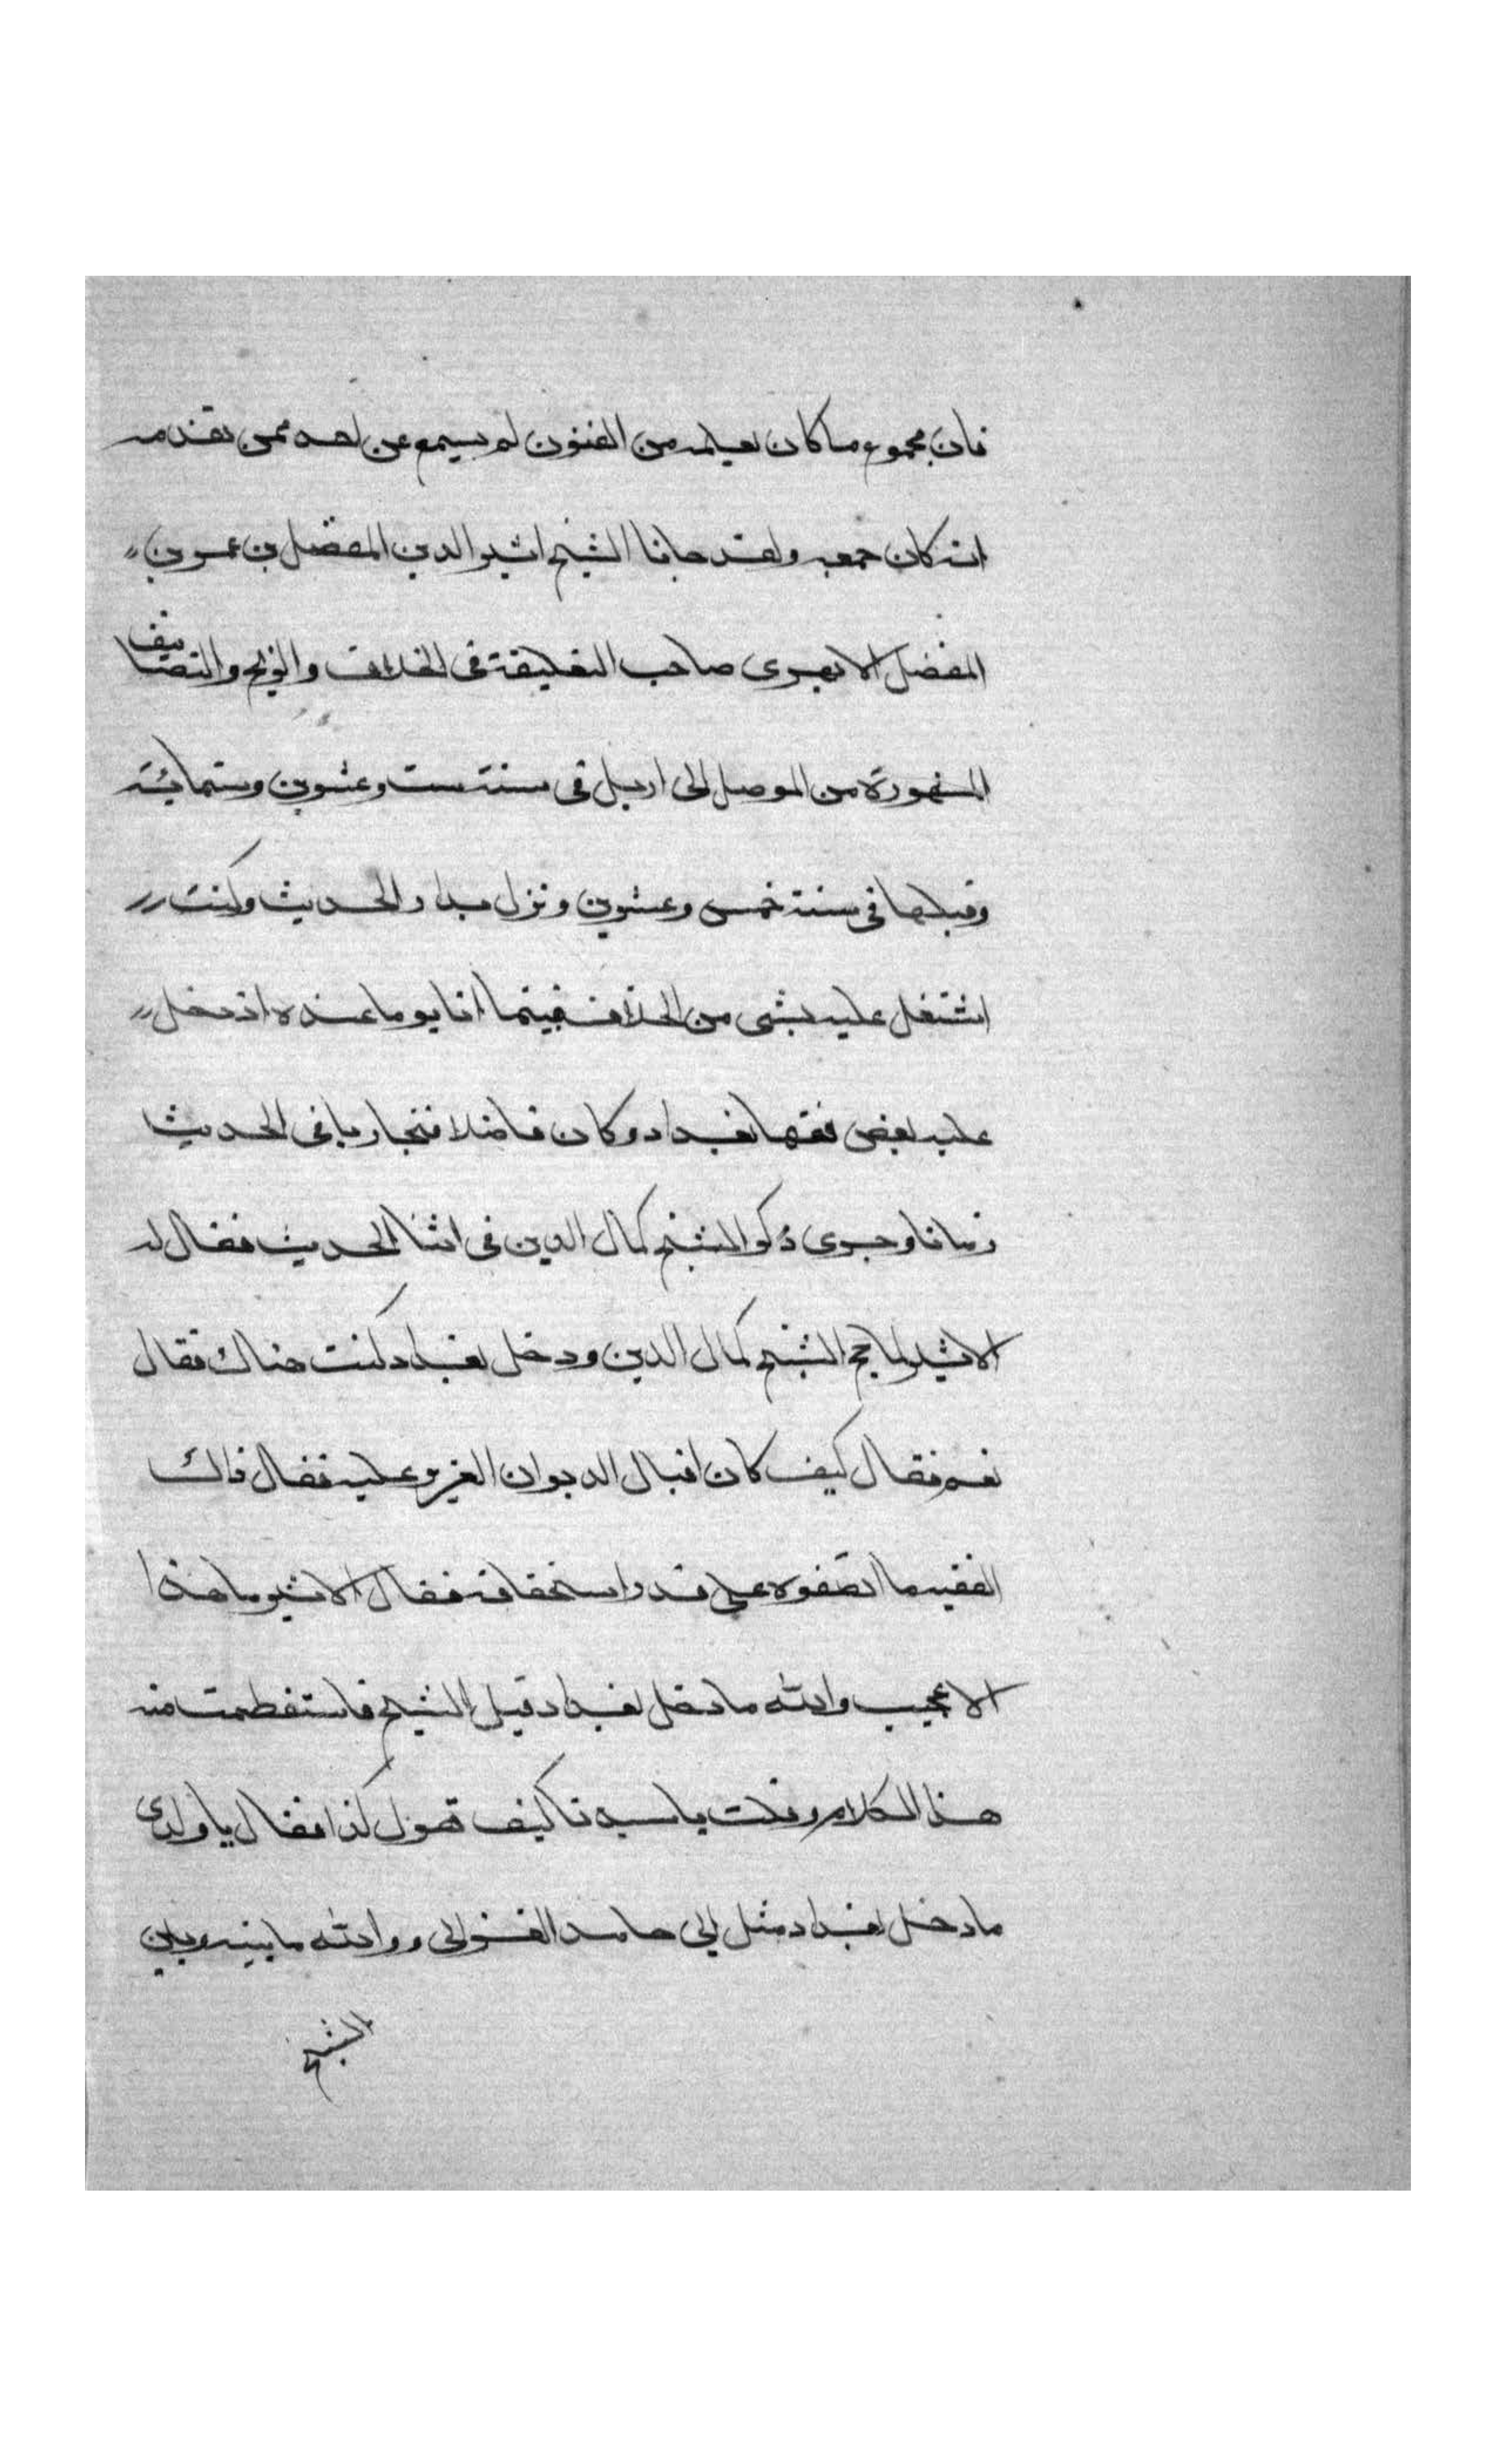 فان مجموع ما كان يعلمه من الفنون لم يسمع عن احد ممن تقدمه
انه كان جمعه ولقد جانا الشيخ اثير الدين المفضل بن عمر بن
المفضل الابهرى صاحب التعليقة فى الخلاف والزيج والتصانيف
المشهورة من الموصل الى اربل فى سنة ست وعشرين وستمائة
وقبلها فى سنة خمس وعشرين ونزل بدار الحديث وكنت
اشتغل عليه بشى من الخلاف فبينما انا يوما عنده اذ دخل
عليه بعض فقها بغداد وكان فاضلا فتجاريا فى الحديث
زمانا وجرى ذكر الشيخ كمال الدين فى اثنا الحديث فقال له
الاثير لما حج الشيخ كمال الدين ودخل بغداد كنت هناك فقال
نعم فقال كيف كان اقبال الديوان العزيز عليه فقال ذاك
الفقيه ما انصفوه على قدر استحقاقه فقال الاثير ما هذا
الا عجيب والله ما دخل بغداد قبل الشيخ فاستعظمت منه
هذا الكلام وقلت يا سيدنا كيف تقول كذا فقال يا ولدى
ما دخل بغداد مثل ابى حامد الغزالى ووالله ما بينه وبين
الشيخ